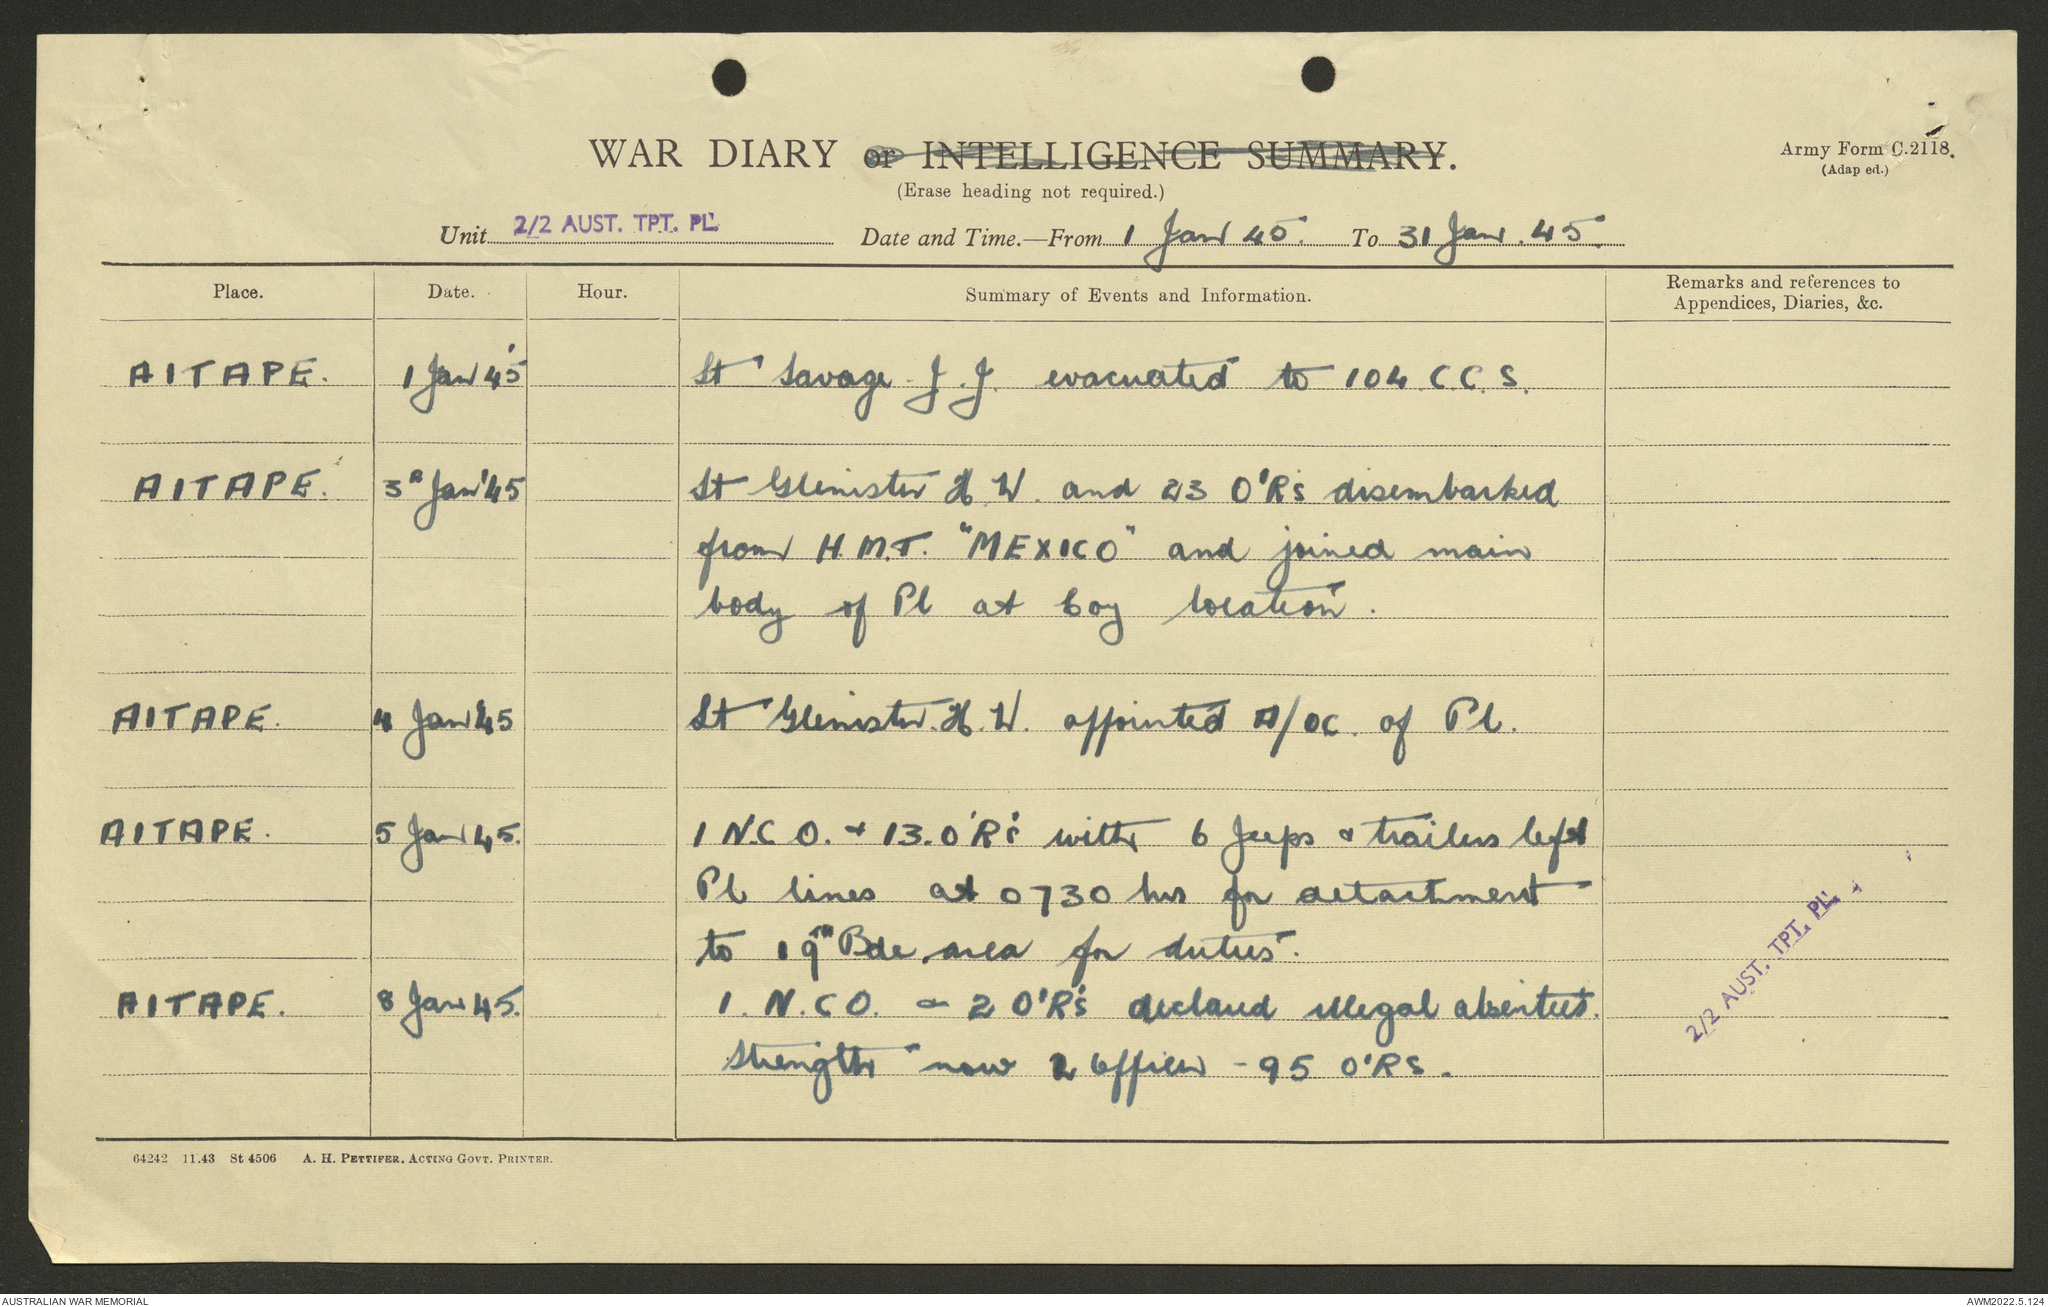 WAR DIARY or INTELLIGENCE SUMMARY.
Army Form C.2118.
(Adapted.)
(Erase heading not required.)
Unit 2/2 AUST. TPT. PL. Date and Time.—From 1 Jan 45. To 31 Jan. 45.
Place. Date. Hour. Summary of Events and Information. Remarks and references to
Appendices, Diaries, &c.
AITAPE. 1 Jan 45 Lt Savage J.J. evacuated to 104 C.C.S.
AITAPE. 3R Jan '45 Lt Glenister H W. and 23 O'R's disembarked
from H.M.T. "MEXICO" and joined main
body of Pl at Coy location.
AITAPE. 4 Jan 45 Lt Glenister. H. W. appointed A/OC. of Pl.
AITAPE. 5 Jan 45. 1 N.C.O. & 13. O'R's with 6 Jeeps & trailers left
Pl lines at 0730 hrs for detachment
to 19th Bde area for duties.
AITAPE. 8 Jan 45. 1. N.C O. & 2 O'R's declared illegal absentees.
Strength now 2 Officer - 95 O'RS.
2/2 AUST. TPT. PL.
64242 11.43 St 4506 A. H. PETTIFER, ACTING GOVT. PRINTER.
AUSTRALIAN WAR MEMORIAL AWM2022.5.124